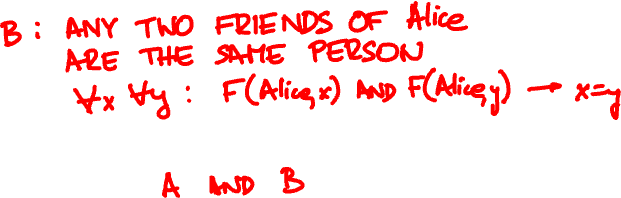 B: ANY TWO FRIENDS OF Alice
ARE THE SAME PERSON
∀x ∀y : F(Alice,x) AND F(Alice,y) → x=y
A AND B